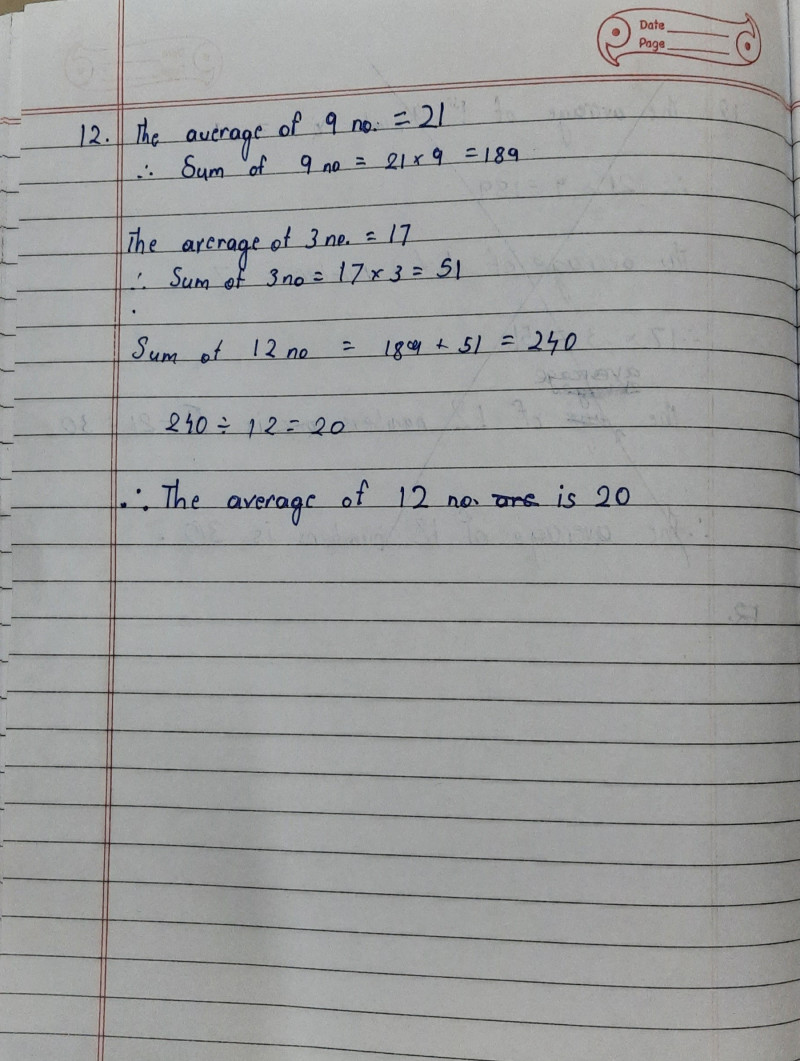 Date
Page
12. The average of 9 no. = 21
∴ Sum of 9 no = 21 x 9 = 189
The average of 3 no. = 17
∴ Sum of 3 no = 17 x 3 = 51
Sum of 12 no = 189 + 51 = 240
240 ÷ 12 = 20
∴ The average of 12 no. are is 20